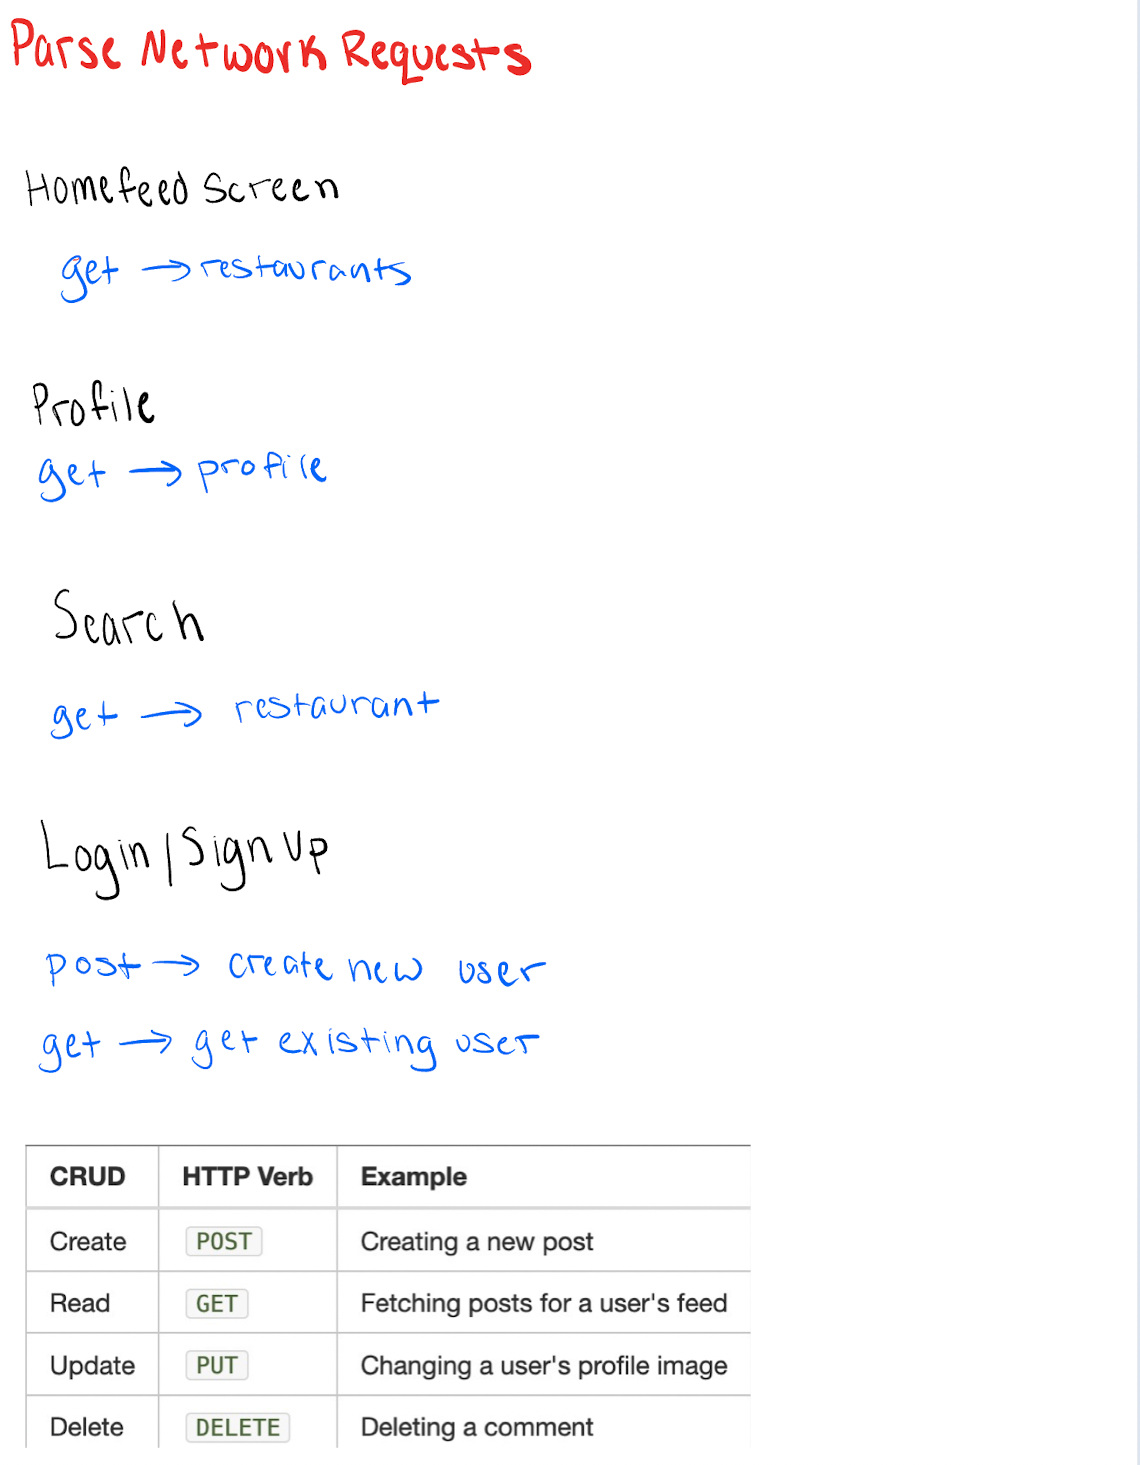 Parse Network Requests
Homefeed Screen
get → restaurants
Profile
get → profile
Search
get → restaurant
Login/Sign Up
post → create new user
get → get existing user
CRUD HTTP Verb Example
Create POST Creating a new post
Read GET Fetching posts for a user's feed
Update PUT Changing a user's profile image
Delete DELETE Deleting a comment